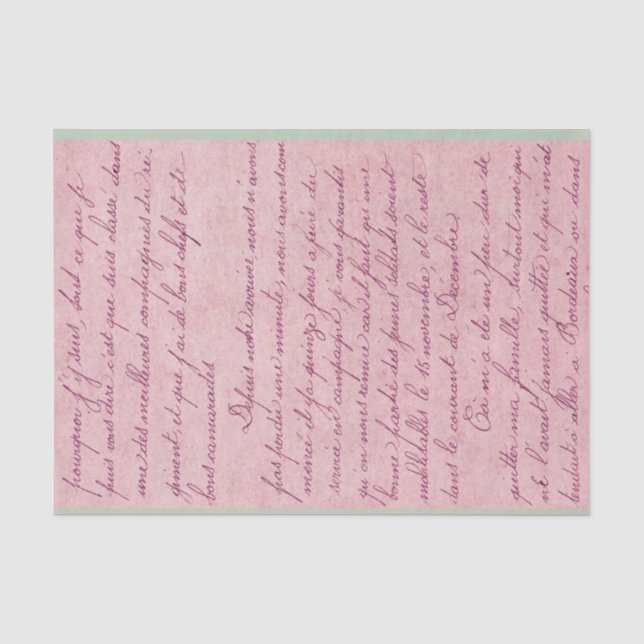 pourquoi j'y suis, tout ce que je
puis vous dire c'est que suis classé dans
une des meilleures compagnies du ré-
giment, et que j'ai de bons chefs et de
bons camarades
Depuis notre arrivée, nous n'avons
pas perdu une minute, nous avons com
mencé il ya quinze jours à faire du
service en campagne je vous garantis
qu'on nous remue car il faut qu'une
bonne partie des jeunes soldats soient
mobilisables le 15 novembre, et le reste
dans le courant de Décembre
Ça m'a été un peu dur de
quitter ma famille, surtout moi qui
ne l'avait jamais quittée et qui m'at
tendait à aller à Bordeaux ou dans